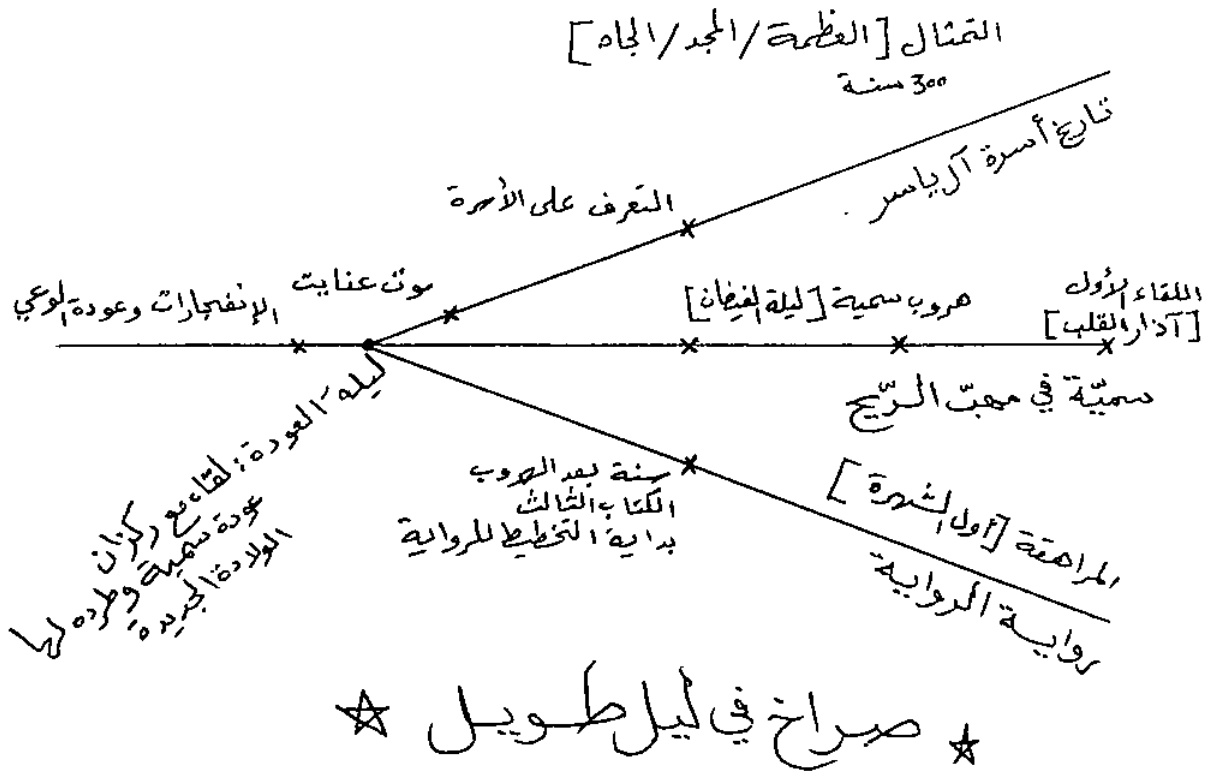 التمثال [العظمة/المجد/الجاه]
300 سنة
تاريخ أسرة آل ياسر
التعرف على الأسرة
موت عنايت
الإنفجارات وعودة الوعي
هروب سمية [ليلة الفيضان]
اللقاء الأول
[آذار القلب]
سميّة في مهبّ الرّيح
ليلة العودة: لقاء مع ركزان
عودة سمية وطرده لها
الولادة الجديدة
سنة بعد الهروب
الكتاب الثالث
بداية التخطيط للرواية
المراهقة [أول الشهرة]
رواية الرواية
صراخ في ليل طويل